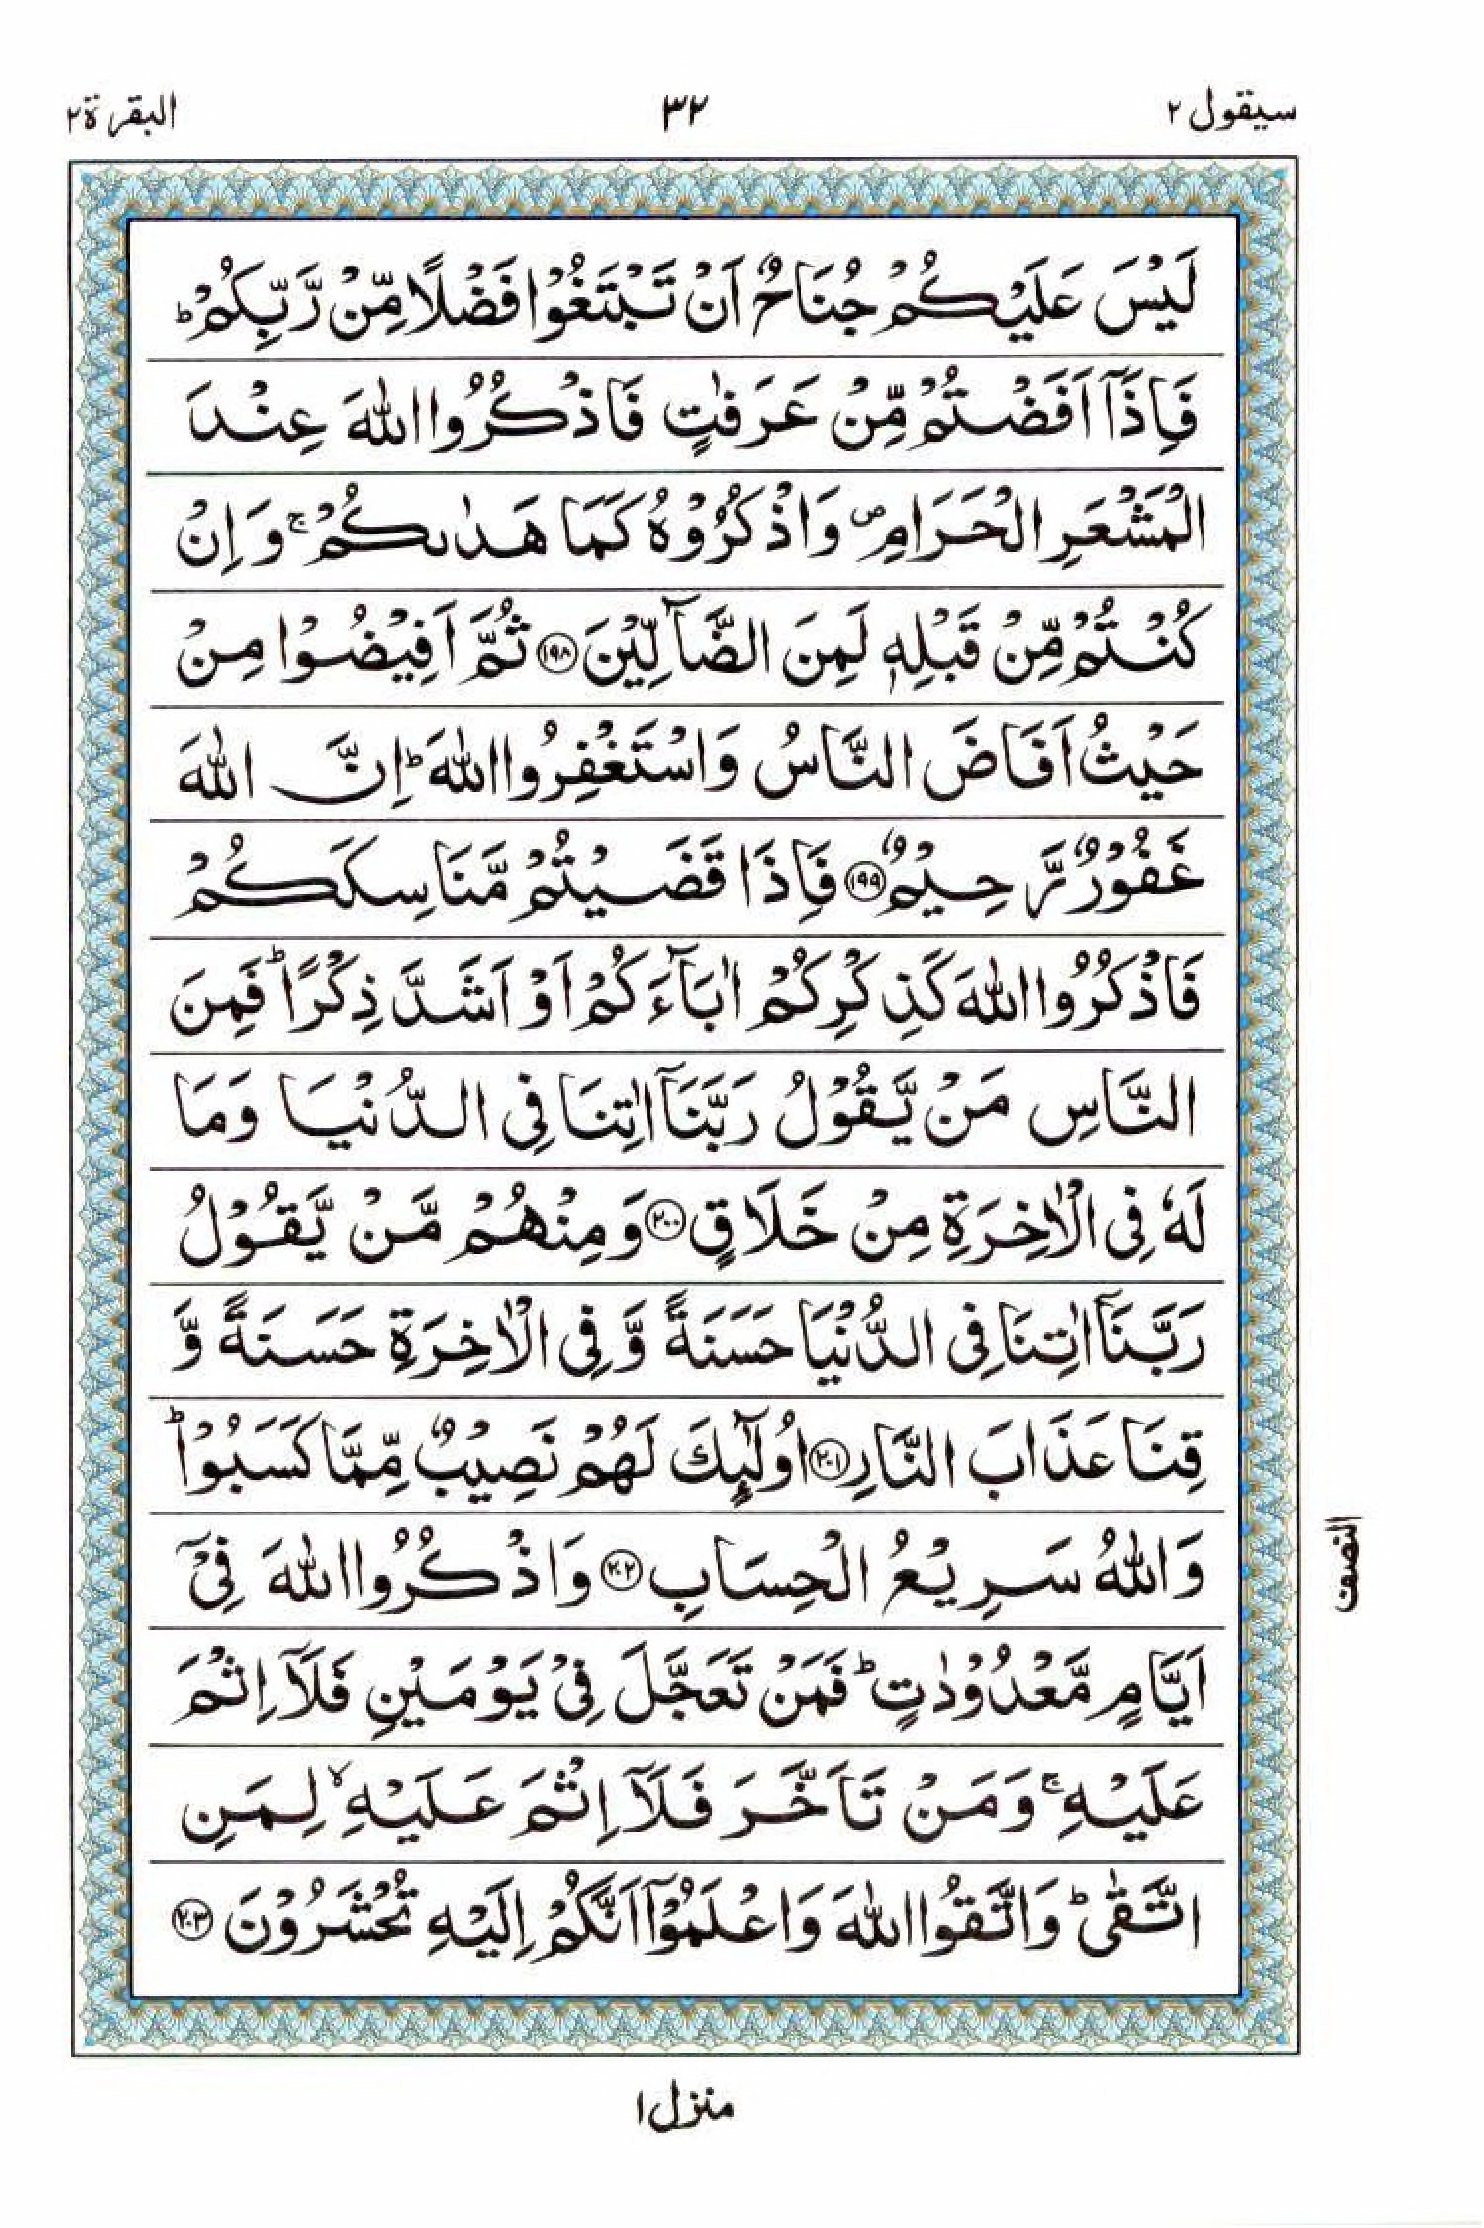 سيقول ٢
٣٢
البقرة ٢
لَيْسَ عَلَيْكُمْ جُنَاحٌ اَنْ تَبْتَغُوْا فَضْلًا مِّنْ رَّبِّكُمْ ؕ
فَاِذَاۤ اَفَضْتُمْ مِّنْ عَرَفٰتٍ فَاذْكُرُوا اللّٰهَ عِنْدَ
الْمَشْعَرِ الْحَرَامِ ۪ وَاذْكُرُوْهُ كَمَا هَدٰىكُمْ ۚ وَاِنْ
كُنْتُمْ مِّنْ قَبْلِهٖ لَمِنَ الضَّآلِّيْنَ ۝۱۹۸ ثُمَّ اَفِيْضُوْا مِنْ
حَيْثُ اَفَاضَ النَّاسُ وَاسْتَغْفِرُوا اللّٰهَ ؕ اِنَّ اللّٰهَ
غَفُوْرٌ رَّحِيْمٌ ۝۱۹۹ فَاِذَا قَضَيْتُمْ مَّنَاسِكَكُمْ
فَاذْكُرُوا اللّٰهَ كَذِكْرِكُمْ اٰبَآءَكُمْ اَوْ اَشَدَّ ذِكْرًا ؕ فَمِنَ
النَّاسِ مَنْ يَّقُوْلُ رَبَّنَاۤ اٰتِنَا فِى الدُّنْيَا وَمَا
لَهٗ فِى الْاٰخِرَةِ مِنْ خَلَاقٍ ۝۲۰۰ وَمِنْهُمْ مَّنْ يَّقُوْلُ
رَبَّنَاۤ اٰتِنَا فِى الدُّنْيَا حَسَنَةً وَّفِى الْاٰخِرَةِ حَسَنَةً وَّ
قِنَا عَذَابَ النَّارِ ۝۲۰۱ اُولٰٓئِكَ لَهُمْ نَصِيْبٌ مِّمَّا كَسَبُوْا ؕ
وَاللّٰهُ سَرِيْعُ الْحِسَابِ ۝۲۰۲ وَاذْكُرُوا اللّٰهَ فِىْۤ
اَيَّامٍ مَّعْدُوْدٰتٍ ؕ فَمَنْ تَعَجَّلَ فِىْ يَوْمَيْنِ فَلَاۤ اِثْمَ
عَلَيْهِ ۚ وَمَنْ تَاَخَّرَ فَلَاۤ اِثْمَ عَلَيْهِ ۙ لِمَنِ
اتَّقٰى ؕ وَاتَّقُوا اللّٰهَ وَاعْلَمُوْۤا اَنَّكُمْ اِلَيْهِ تُحْشَرُوْنَ ۝۲۰۳
النصف
منزل ۱